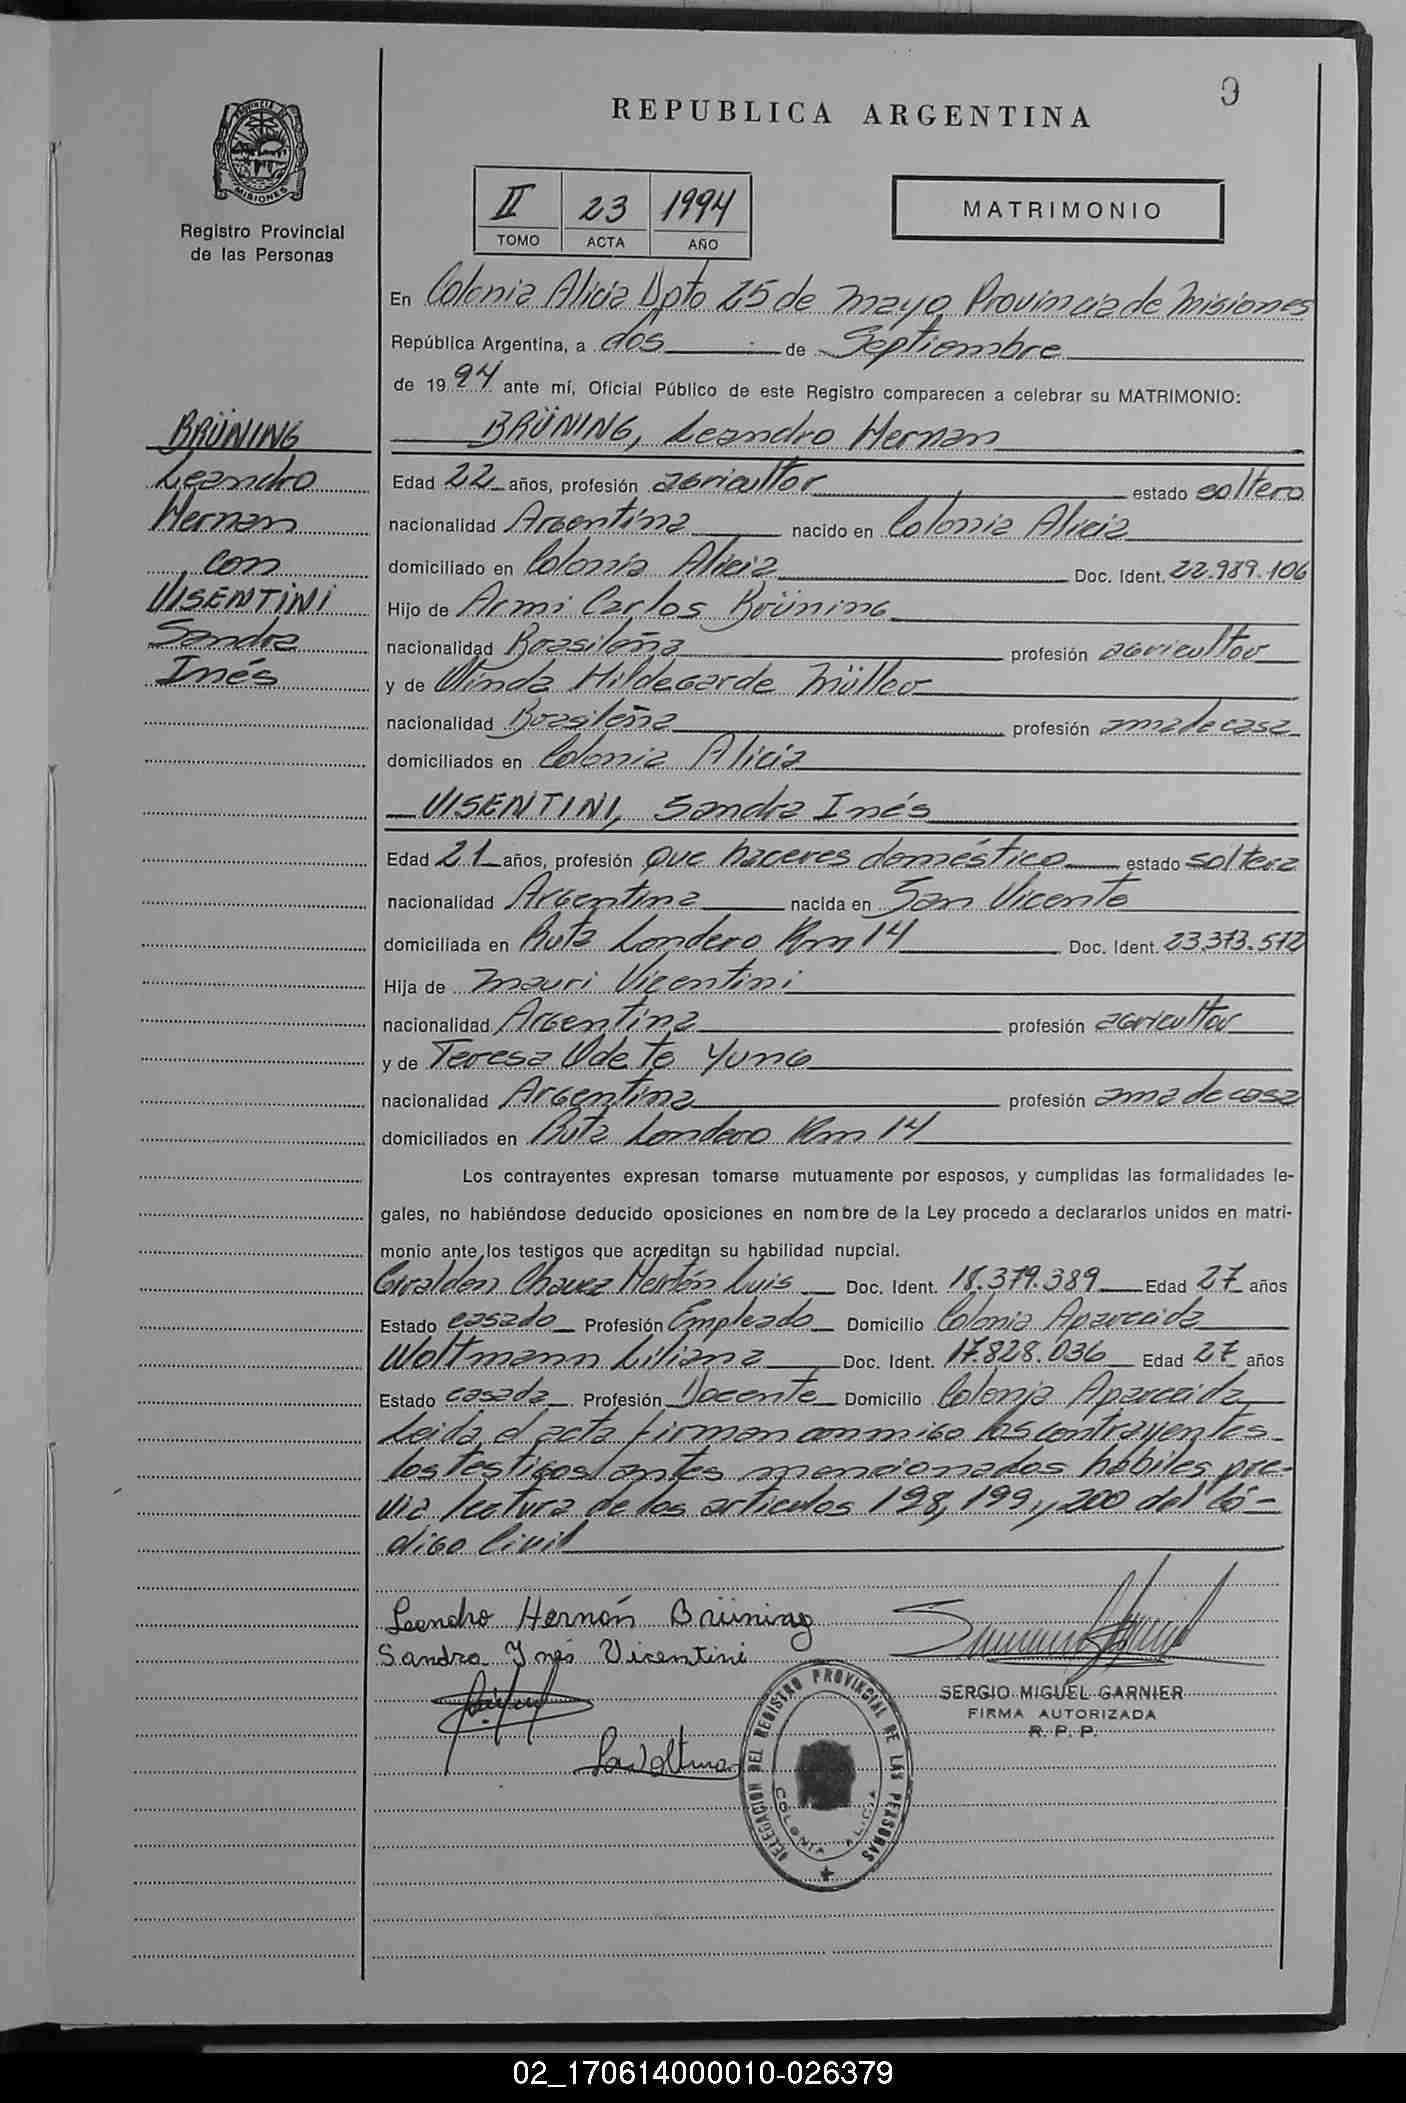 9
REPUBLICA ARGENTINA
PROVINCIA DE MISIONES
Registro Provincial
de las Personas
II 23 1994
TOMO ACTA AÑO
MATRIMONIO
En Colonia Alicia Dpto 25 de mayo, Provincia de Misiones
República Argentina, a dos de Septiembre
de 1994 ante mí, Oficial Público de este Registro comparecen a celebrar su MATRIMONIO:
BRÜNING
Leandro
Hernan
con
VISENTINI
Sandra
Inés
BRÜNING, Leandro Hernan
Edad 22 años, profesión agricultor estado soltero
nacionalidad Argentina nacido en Colonia Alicia
domiciliado en Colonia Alicia Doc. Ident. 22.989.106
Hijo de Armi Carlos Brüning
nacionalidad Brasileña profesión agricultor
y de Olinda Hildegarde Müller
nacionalidad Brasileña profesión ama de casa
domiciliados en Colonia Alicia
VISENTINI, Sandra Inés
Edad 21 años, profesión que haceres doméstico estado soltera
nacionalidad Argentina nacida en San Vicente
domiciliada en Ruta Londero Km 14 Doc. Ident. 23.373.572
Hija de Mauri Vicentini
nacionalidad Argentina profesión agricultor
y de Teresa Odete Yung
nacionalidad Argentina profesión ama de casa
domiciliados en Ruta Londero Km 14
Los contrayentes expresan tomarse mutuamente por esposos, y cumplidas las formalidades le-
gales, no habiéndose deducido oposiciones en nombre de la Ley procedo a declararlos unidos en matri-
monio ante los testigos que acreditan su habilidad nupcial.
Chavez Luis Doc. Ident. 18.379.389 Edad 27 años
Estado casado Profesión Empleado Domicilio Colonia Aparecida
Woltmann Liliana Doc. Ident. 17.828.036 Edad 27 años
Estado casada Profesión Docente Domicilio Colonia Aparecida
Leida el acta firman conmigo los contrayentes
los testigos antes mencionados hábiles, pre-
via lectura de los articulos 198, 199, y 200 del Có-
digo Civil
Leandro Hernán Brüning
Sandra Ynés Vicentini
SERGIO MIGUEL GARNIER
FIRMA AUTORIZADA
R. P. P.
DELEGACION DEL REGISTRO PROVINCIAL DE LAS PERSONAS
COLONIA ALICIA
02_170614000010-026379